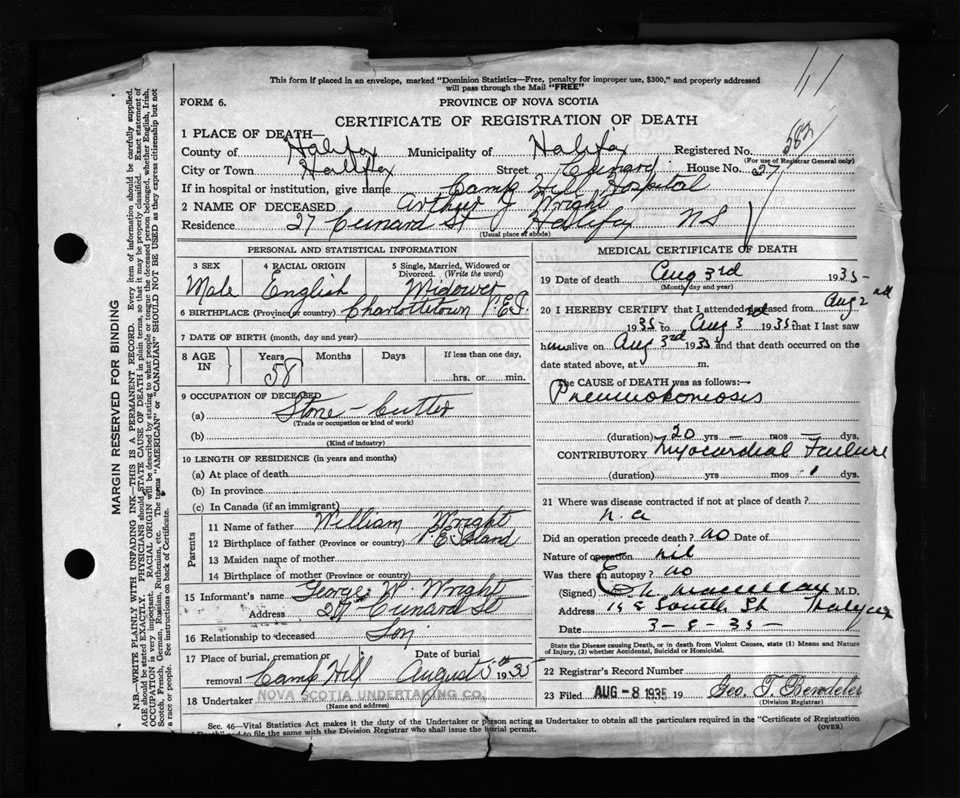 This form if placed in an envelope, marked "Dominion Statistics—Free, penalty for improper use, $300," and properly addressed
will pass through the Mail "FREE"
FORM 6.
PROVINCE OF NOVA SCOTIA
CERTIFICATE OF REGISTRATION OF DEATH
1 PLACE OF DEATH—
County of Halifax Municipality of Halifax Registered No. 583
(For use of Registrar General only)
City or Town Halifax Street Cunard House No. 27
If in hospital or institution, give name Camp Hill Hospital
2 NAME OF DECEASED Arthur J Wright
Residence 27 Cunard St Halifax NS
(Usual place of abode)
PERSONAL AND STATISTICAL INFORMATION
3 SEX 4 RACIAL ORIGIN 5 Single, Married, Widowed or
Divorced. (Write the word)
Male English Widower
6 BIRTHPLACE (Province or country) Charlottetown P.E.I.
7 DATE OF BIRTH (month, day and year)
8 AGE IN Years Months Days If less than one day,
58 hrs. or min.
9 OCCUPATION OF DECEASED
(a) Stone-Cutter
(Trada or occupation or kind of work)
(b)
(Kind of industry)
10 LENGTH OF RESIDENCE (in years and months)
(a) At place of death
(b) In province
(c) In Canada (if an immigrant)
Parents
11 Name of father William Wright
12 Birthplace of father (Province or country) P E Island
13 Maiden name of mother
14 Birthplace of mother (Province or country)
15 Informant's name George W. Wright
Address 27 Cunard St
16 Relationship to deceased Son
17 Place of burial, cremation or Date of burial
removal Camp Hill August 5th 1935
18 Undertaker NOVA SCOTIA UNDERTAKING CO.
(Name and address)
MEDICAL CERTIFICATE OF DEATH
19 Date of death Aug 3rd 1935-
(Month, day and year)
20 I HEREBY CERTIFY that I attended deceased from Aug 2nd
1935 to Aug 3 1935 that I last saw
him alive on Aug 3rd 1935 and that death occurred on the
date stated above, at m.
The CAUSE OF DEATH was as follows:—
Pneumokoniosis
(duration) 20 yrs — mos — dys.
CONTRIBUTORY Myocardial Failure
(duration) yrs mos 1 dys.
21 Where was disease contracted if not at place of death?
n.a
Did an operation precede death? no Date of
Nature of operation nil
Was there an autopsy? no
(Signed) M.D.
Address South St Halifax
Date 3-8-35-
State the Disease causing Death, or in death from Violent Causes, state (1) Means and Nature
of Injury, (2) whether Accidental, Suicidal or Homicidal.
22 Registrar's Record Number
23 Filed AUG -8 1935 19 Geo. T.
(Division Registrar)
Sec. 46—Vital Statistics Act makes it the duty of the Undertaker or person acting as Undertaker to obtain all the particulars required in the "Certificate of Registration
of Death" and to file the same with the Division Registrar who shall issue the burial permit.
(OVER)
MARGIN RESERVED FOR BINDING
N.B.—WRITE PLAINLY WITH UNFADING INK—THIS IS A PERMANENT RECORD. Every item of information should be carefully supplied.
AGE should be stated EXACTLY. PHYSICIANS should STATE CAUSE OF DEATH in plain terms, so that it may be properly classified. Exact statement of
OCCUPATION is very important. RACIAL ORIGIN will be described by stating to what people or tongue the deceased person belonged, whether English, Irish,
Scotch, French, German, Russian, Ruthenian, etc. The terms "AMERICAN" or "CANADIAN" SHOULD NOT BE USED as they express citizenship but not
a race or people. See instructions on back of Certificate.